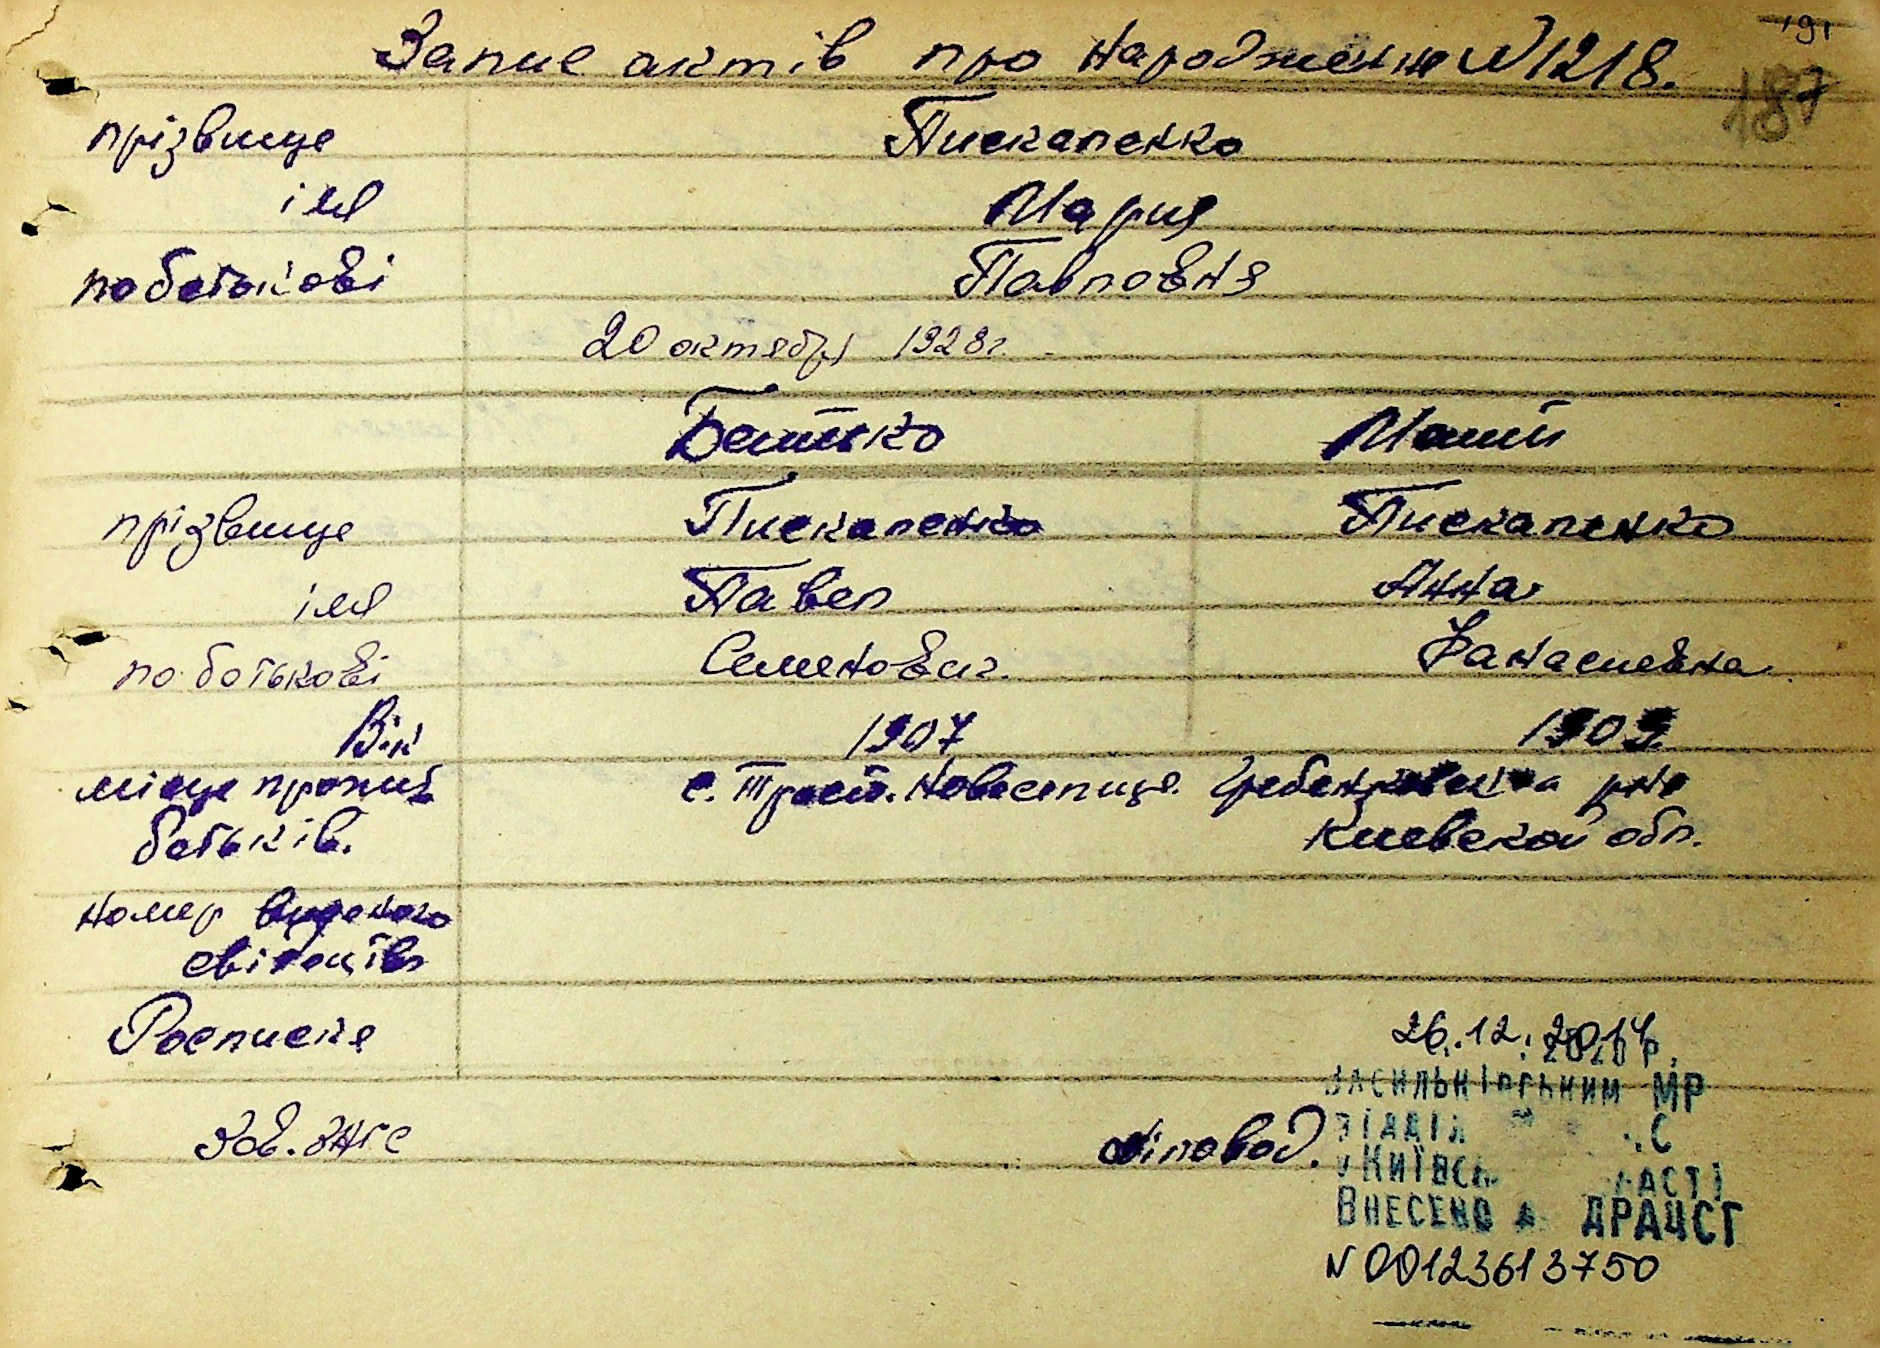 191
Запис актів про народження N 1218.
187
прізвище Пискаленко
імя Мария
по батькові Павловна
20 октября 1928 г.
Батько Мати
прізвище Пискаленко Пискаленко
імя Павел Анна
по батькові Семенович. Фанасиевна
Вік 1907 1909
місце прожив. с. Трост. Новоселица Гребенковска рно
батьків. Киевской обл.
номер виданого
свідоцтв
Росписка
26.12.2014
2020 р.
Васильківським МР
відділ С
у Київсь ласті
Зав. ЗАГС
Внесено д ДРАЦСГ
N 00123613750